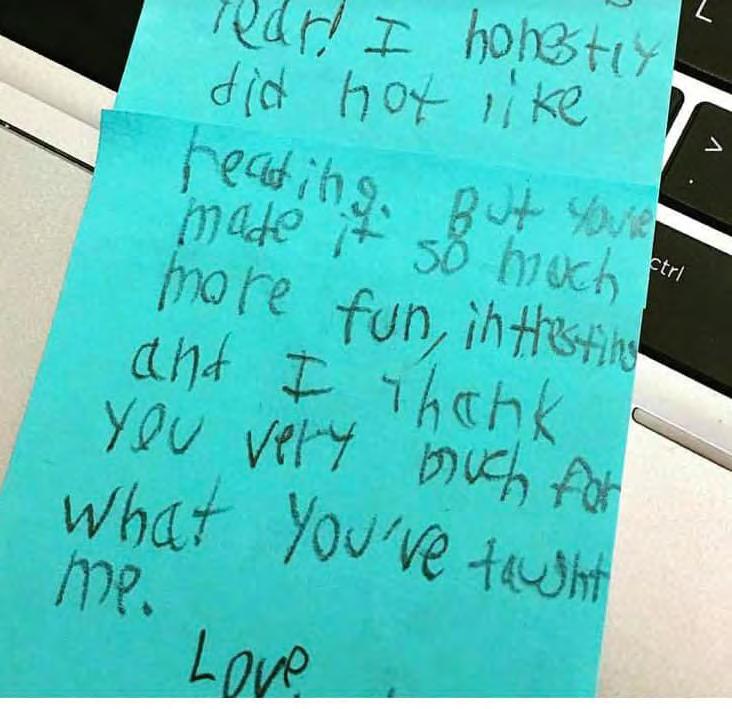 year! I honestly
did not like
reading. But you've
made it so much
more fun, inttresting
and I thank
you very much for
what you've taught
me.
Love
L
>
.
ctrl